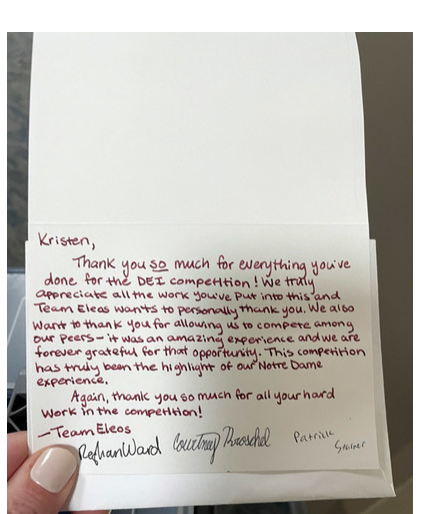 Kristen,
Thank you so much for everything you've
done for the DEI competition! We truly
appreciate all the work you've put into this and
Team Eleas wants to personally thank you. We also
want to thank you for allowing us to compete among
our peers - it was an amazing experience and we are
forever grateful for that opportunity. This competition
has truly been the highlight of our Notre Dame
experience.
Again, thank you so much for all your hard
work in the competition!
- Team Eleos
Ward Courtney Patrick